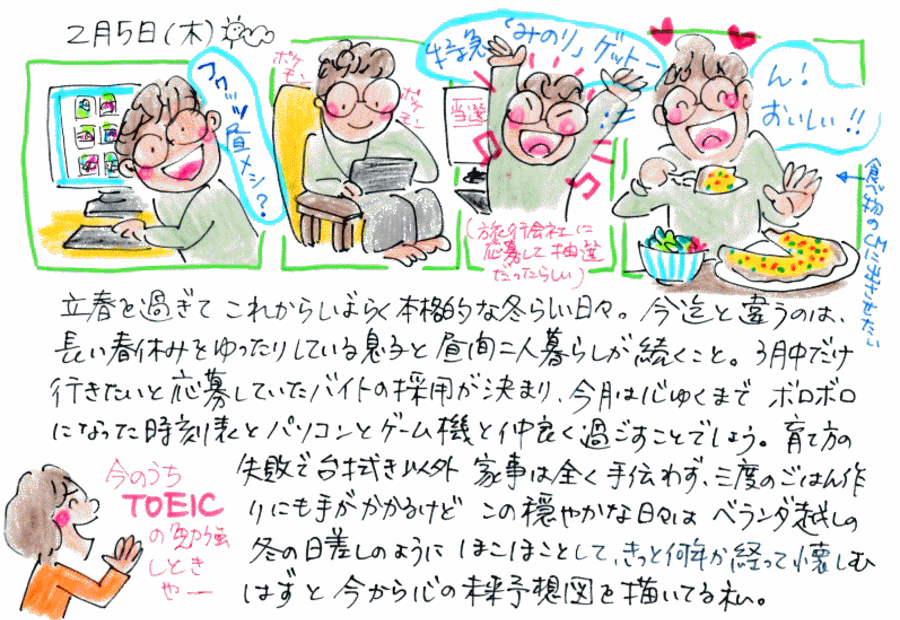 2月5日(木)
フワッツ
昼メシ?
ポケモン
ポケモン
特急「みのり」ゲットー
当選
(旅行会社に
応募して抽選
だったらしい)
ん!
おいしい!!
食べ物の
立春を過ぎて これからしばらく本格的な冬らしい日々。今迄と違うのは、
長い春休みをゆったりしている息子と昼間二人暮らしが続くこと。3月中だけ
行きたいと応募していたバイトの採用が決まり、今月は心ゆくまで ボロボロ
になった時刻表とパソコンとゲーム機と仲良く過ごすことでしょう。育て方の
失敗で台拭き以外 家事は全く手伝わず、三度のごはん作
りにも手がかかるけど この穏やかな日々は ベランダ越しの
冬の日差しのように ほこほことして、きっと何年か経って懐しむ
はずと今から心の未来予想図を描いてる私。
今のうち
TOEIC
の勉強
しとき
やー